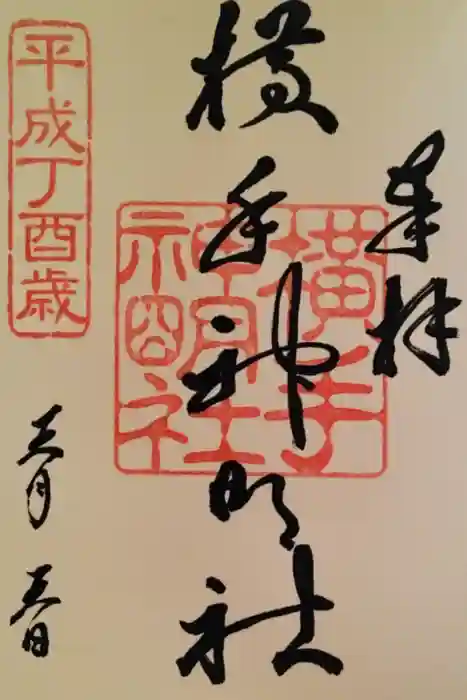 奉拝
横手神明社
横手
神明社
平成丁酉歳
三月三日